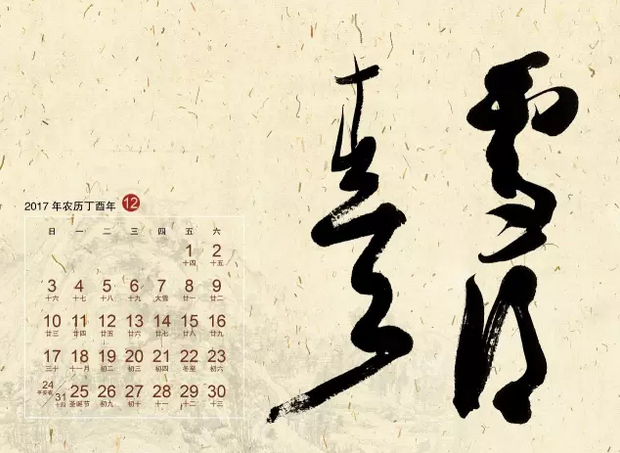 雪
2017 年农历丁酉年 12
日 一 二 三 四 五 六
1 2
十四 十五
3 4 5 6 7 8 9
十六 十七 十八 十九 大雪 廿一 廿二
10 11 12 13 14 15 16
廿三 廿四 廿五 廿六 廿七 廿八 廿九
17 18 19 20 21 22 23
三十 十一月 初二 初三 初四 冬至 初六
24/31 25 26 27 28 29 30
平安夜 十四 圣诞节 初九 初十 十一 十二 十三